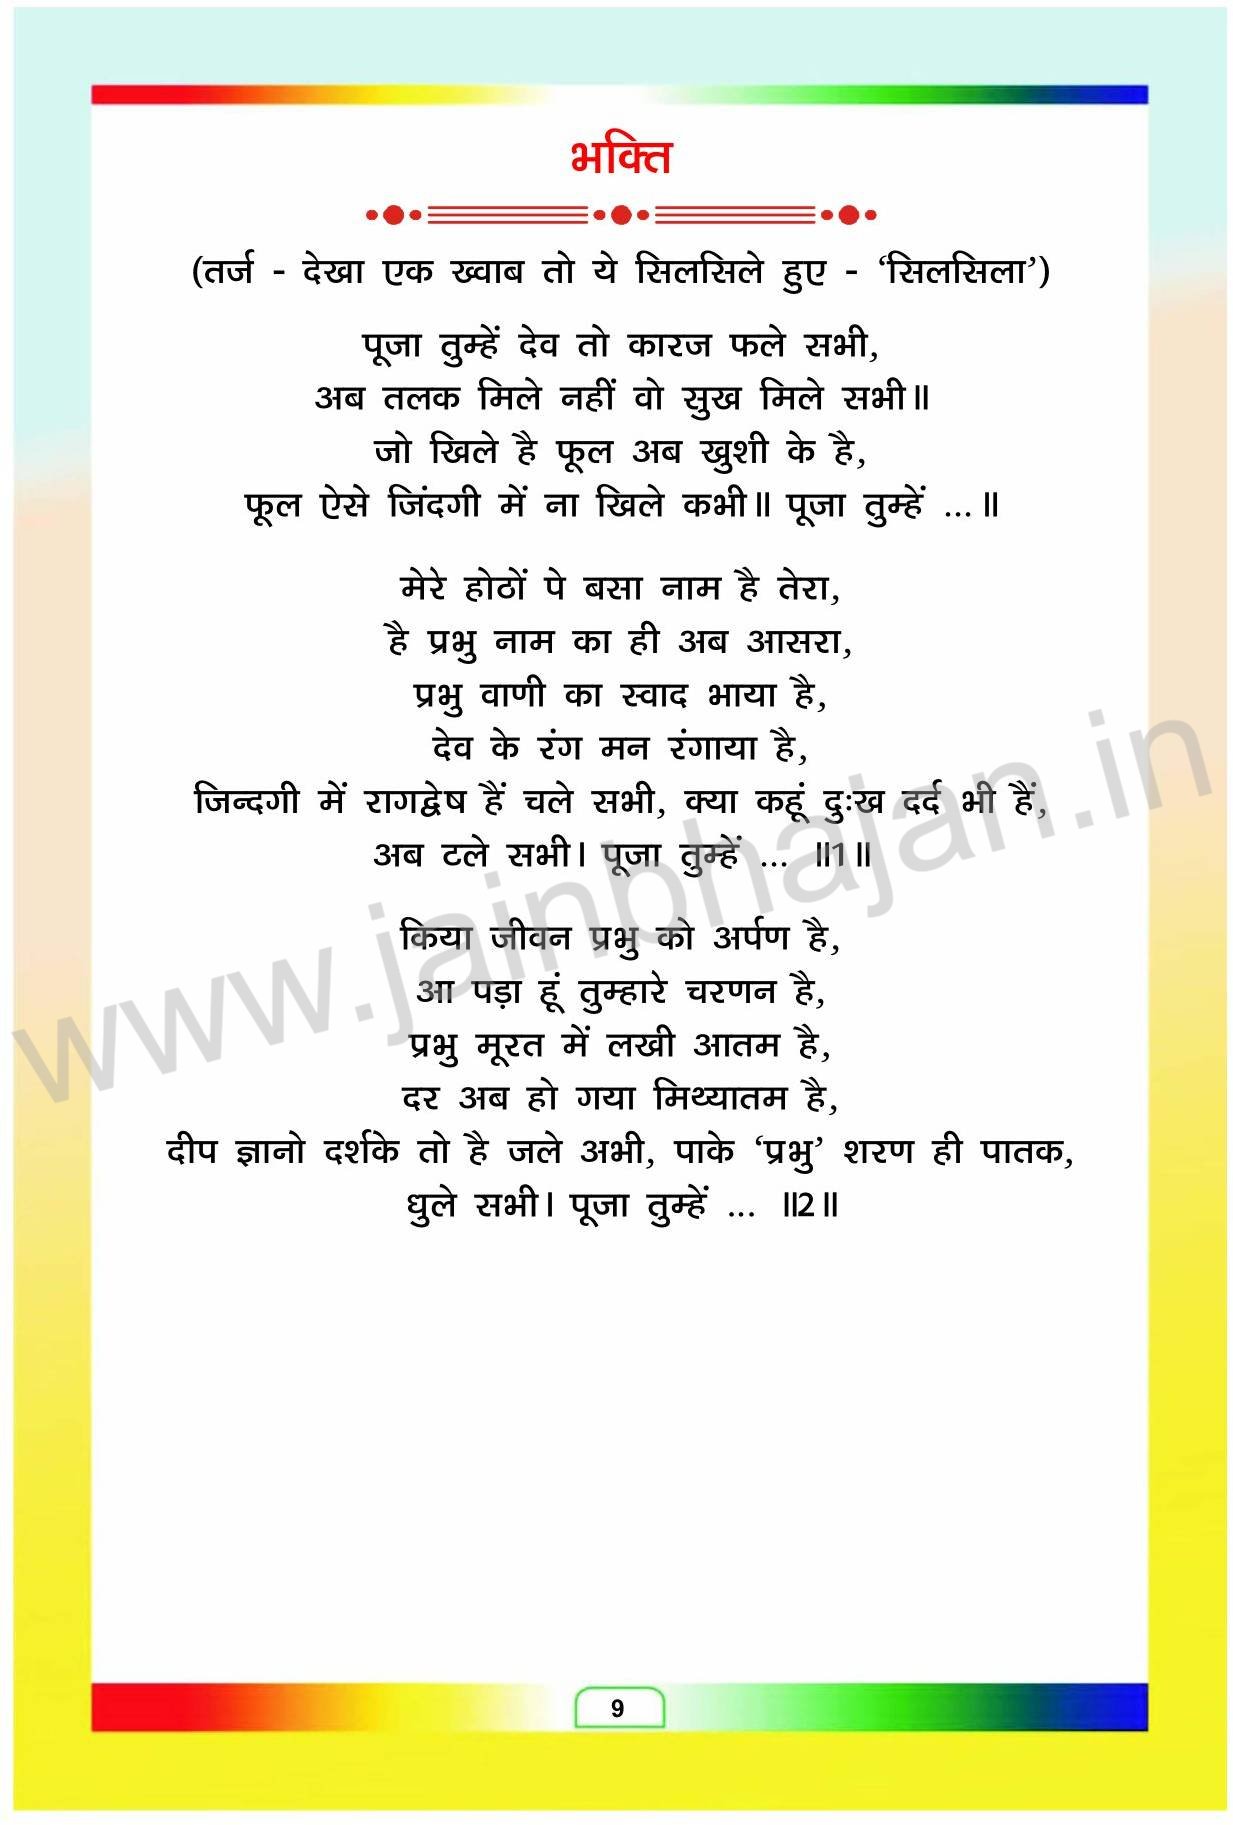 भक्ति
(तर्ज - देखा एक ख्वाब तो ये सिलसिले हुए - ‘सिलसिला’)
पूजा तुम्हें देव तो कारज फले सभी,
अब तलक मिले नहीं वो सुख मिले सभी॥
जो खिले है फूल अब खुशी के है,
फूल ऐसे जिंदगी में ना खिले कभी॥ पूजा तुम्हें ...॥
मेरे होठों पे बसा नाम है तेरा,
है प्रभु नाम का ही अब आसरा,
प्रभु वाणी का स्वाद भाया है,
देव के रंग मन रंगाया है,
जिन्दगी में रागद्वेष हैं चले सभी, क्या कहूं दुःख दर्द भी हैं,
अब टले सभी। पूजा तुम्हें ... ॥1॥
किया जीवन प्रभु को अर्पण है,
आ पड़ा हूं तुम्हारे चरणन है,
प्रभु मूरत में लखी आतम है,
दर अब हो गया मिथ्यातम है,
दीप ज्ञानो दर्शके तो है जले अभी, पाके ‘प्रभु’ शरण ही पातक,
धुले सभी। पूजा तुम्हें ... ॥2॥
www.jainbhajan.in
9